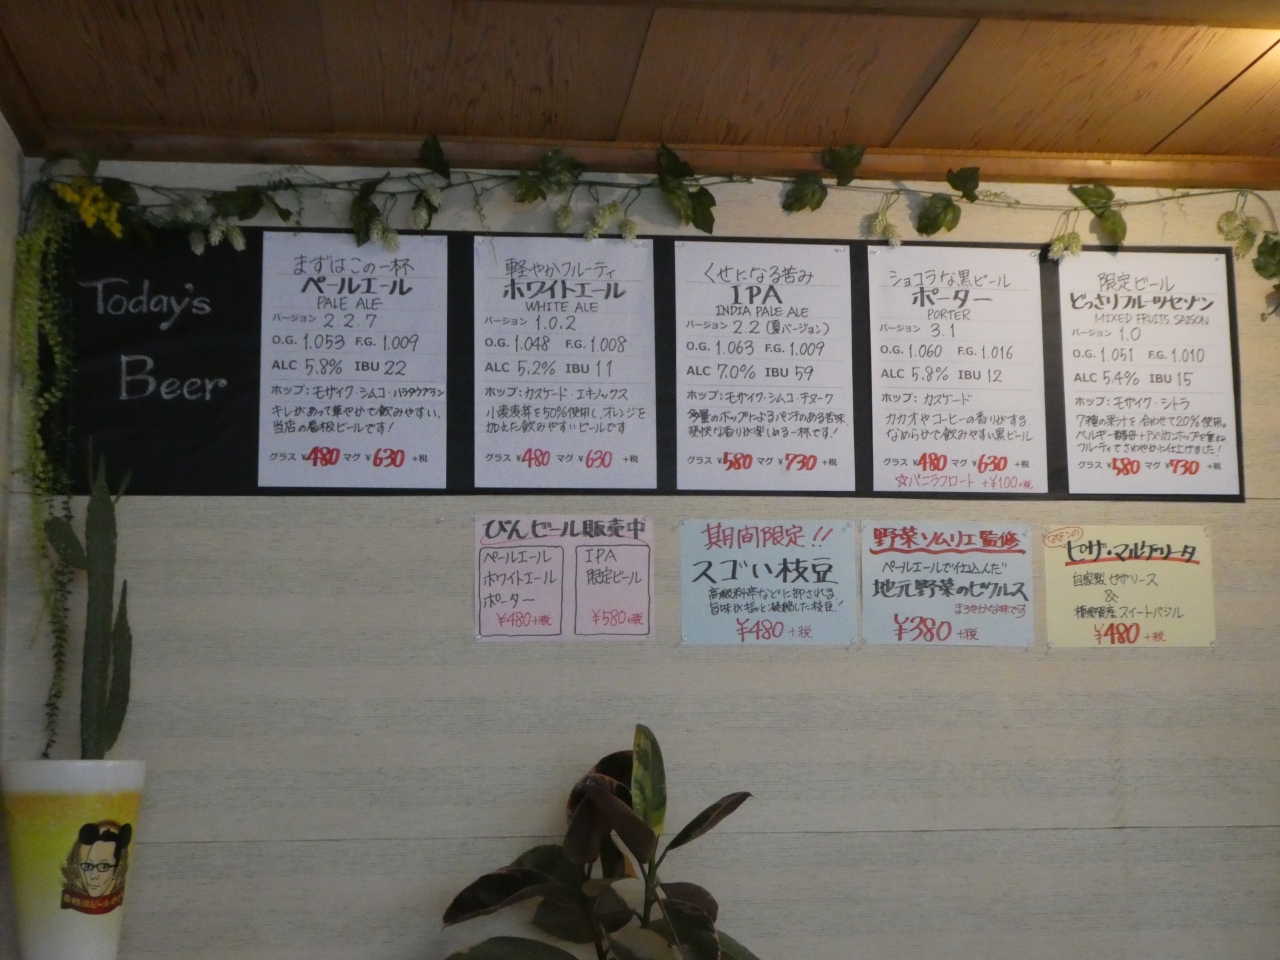 Today's
Beer
まずはこの一杯
ペールエール
PALE ALE
バージョン 2.2.7
O.G. 1.053 F.G. 1.009
ALC 5.8% IBU 22
ホップ:モザイク・シムコ・ハラタウブラン
キレがあって華やかで飲みやすい、
当店の看板ビールです!
グラス ¥480 マグ ¥630 +税
軽やかフルーティ
ホワイトエール
WHITE ALE
バージョン 1.0.2
O.G. 1.048 F.G. 1.008
ALC 5.2% IBU 11
ホップ:カスケード・エキノックス
小麦麦芽を50%使用し、オレンジを
加えた飲みやすいビールです
グラス ¥480 マグ ¥630 +税
くせになる苦み
IPA
INDIA PALE ALE
バージョン 2.2 (夏バージョン)
O.G. 1.063 F.G. 1.009
ALC 7.0% IBU 59
ホップ:モザイク・シムコ・チヌーク
多量のホップによるパンチのある苦味、
爽快な香りが楽しめる一杯です!
グラス ¥580 マグ ¥730 +税
ショコラな黒ビール
ポーター
PORTER
バージョン 3.1
O.G. 1.060 F.G. 1.016
ALC 5.8% IBU 12
ホップ:カスケード
カカオやコーヒーの香りがする、
なめらかで飲みやすい黒ビール
グラス ¥480 マグ ¥630 +税
☆バニラフロート +¥100+税
限定ビール
どっさりフルーツセゾン
MIXED FRUITS SAISON
バージョン 1.0
O.G. 1.051 F.G. 1.010
ALC 5.4% IBU 15
ホップ:モザイク・シトラ
7種の果汁を合わせて20%使用。
ベルギー酵母+アメリカンホップを重ね
フルーティでさわやかに仕上げました!
グラス ¥580 マグ ¥730 +税
びんビール販売中
ペールエール
ホワイトエール
ポーター
¥480+税
IPA
限定ビール
¥580+税
期間限定!!
スゴい枝豆
高級料亭などに卸される
旨味がギュッと凝縮した枝豆!
¥480+税
野菜ソムリエ監修
ペールエールで"仕込んだ"
地元野菜のピクルス
まろやかな味です
¥380+税
ピザ・マルゲリータ
自家製ピザソース
&
スイートバジル
¥480+税